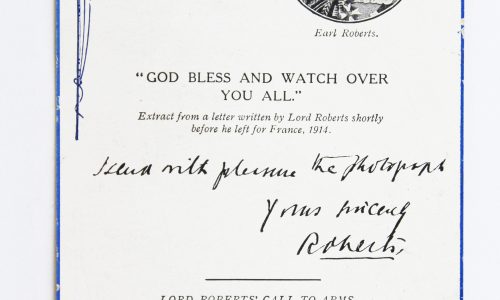 Earl Roberts.
"GOD BLESS AND WATCH OVER
YOU ALL."
Extract from a letter written by Lord Roberts shortly
before he left for France, 1914.
I send with pleasure the photograph
Yours sincerely
Roberts,
LORD ROBERTS' CALL TO ARMS